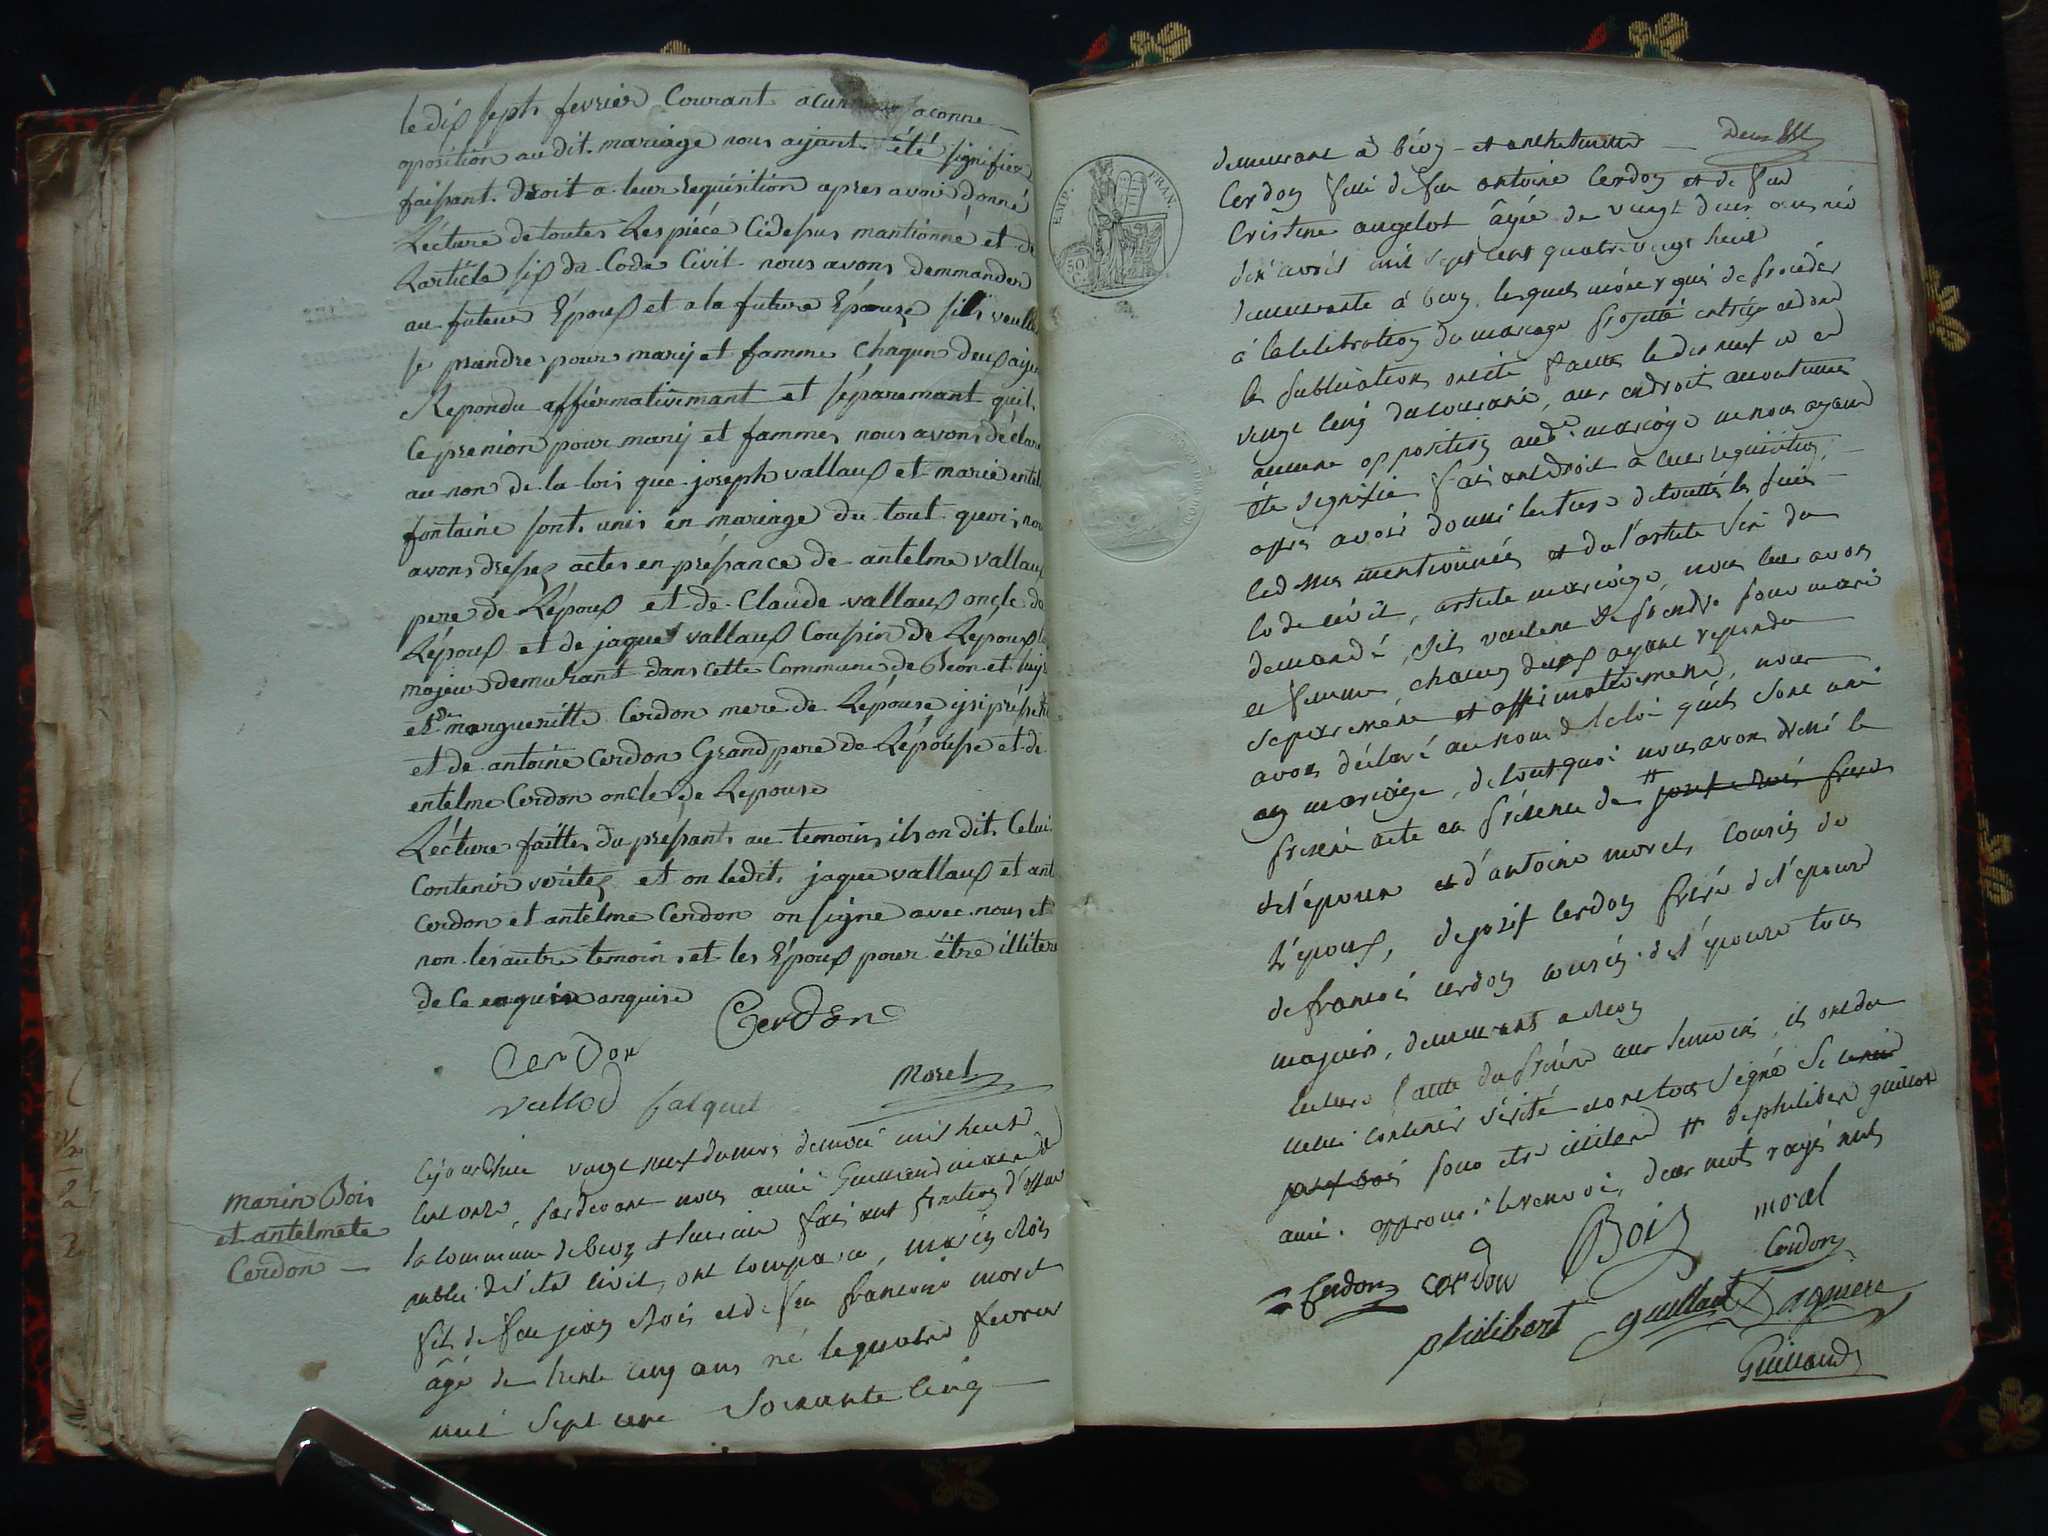 le dix sept fevrier Courant aconne
oposition au dit mariage nous ayant été signifiez
faisant droit a leur requisition apres avoir donné
Lecture de toutes Les piéce Cidesus mantionné et de
Larticle six du Code Civil nous avons demmander
au future Epoux et a la future Epouze sils veulle
se prandre pour mary et famme Chaqun deux ayen
Repondu affiermativemant et séparemant quil
Ce prenion pour mary et famme, nous avons déclare
au non de la lois que joseph vallaux et marie entel
fontaine sont unis en mariage du tout quoi, nou
avons dressez actes en pressance de antelme vallaux
pere de Lépoux et de Claude vallaux oncle de
Lépoux et de jaque vallaux Coussin de Lépoux
majeur demurant dans cette Commune de Beon et luy
et de margueritte Cerdon mere de Lépouse
et de antoine Cerdon Grandpere de Lépousse et de
entelme Cerdon oncle de Lépouse
Lécture faittes du pressant au temoins, ils on dit Celui
Contenir veritez et on ledit jaque vallaux et ant
Cerdon et antelme Cerdon on signe avec nous et
non les autre temoin et les Epoux pour être illitere
de Ce enquire anquire
Cerdon
Cerdon
vallod jacquet
Morel
Marin Bois
et antelmete
Cerdon
Cejourdhui vingt neuf du mois de mil huit
cent onze, pardevant nous aimé Guillaud maire de
la commune de beon et faisant fonction d'officier
public de l'etat civil, ont comparu, marin Bois
fils de feu jean Bois et de feu françoise morel
âgé de trente cinq ans né le quatre fevrier
mil sept cent soixante cinq
demeurant à béon et anthelmette Deux
Cerdon fille de feu antoine Cerdon et de feu
Cristine angelot âgée de vingt deux ans né
avril mil sept cent quatre vingt heuit
demeurante à beon, lesquels mons requi de procéder
à la celebration du mariage projetté entreux et dont
les publications onété faites le dix neuf et
vingt cinq du courant, aux endroit acoutumes
aucune opposition audt. mariage ne nous ayant
été signifié faisant droit a leur requisition,
après avoir donné lecture de touttes les pieces
cidessus mentionnées et de l'article six du
code civil, article mariage, nous leur avons
demandé s'ils veulent se prendre pour mari
et femme, chacun deux ayant repondu
separement et affirmativement, nous
avons déclaré au nom de la loi qu'ils sont uni
en mariage, de tout quoi nous avons dressé le
present acte en présence de # josef Bois frere
de l'epoux et d'antoine morel, cousin de
l'epoux, de josef Cerdon frere de l'epouse
de françois cerdon cousin de l'epouse tous
majeurs, demeurant a Beon
lecture faitte du présent aux temoins, ils ont dit
celui contenir vérité et ont tous signé
josef bois pour etre illitere # de philibert guillot
ami. approuvé le renvoi, deux mots rayé nuls
Bois
morel
Cerdon
Cerdon
cerdon
philibert guillaut
Guillaud
EMP. FRAN.